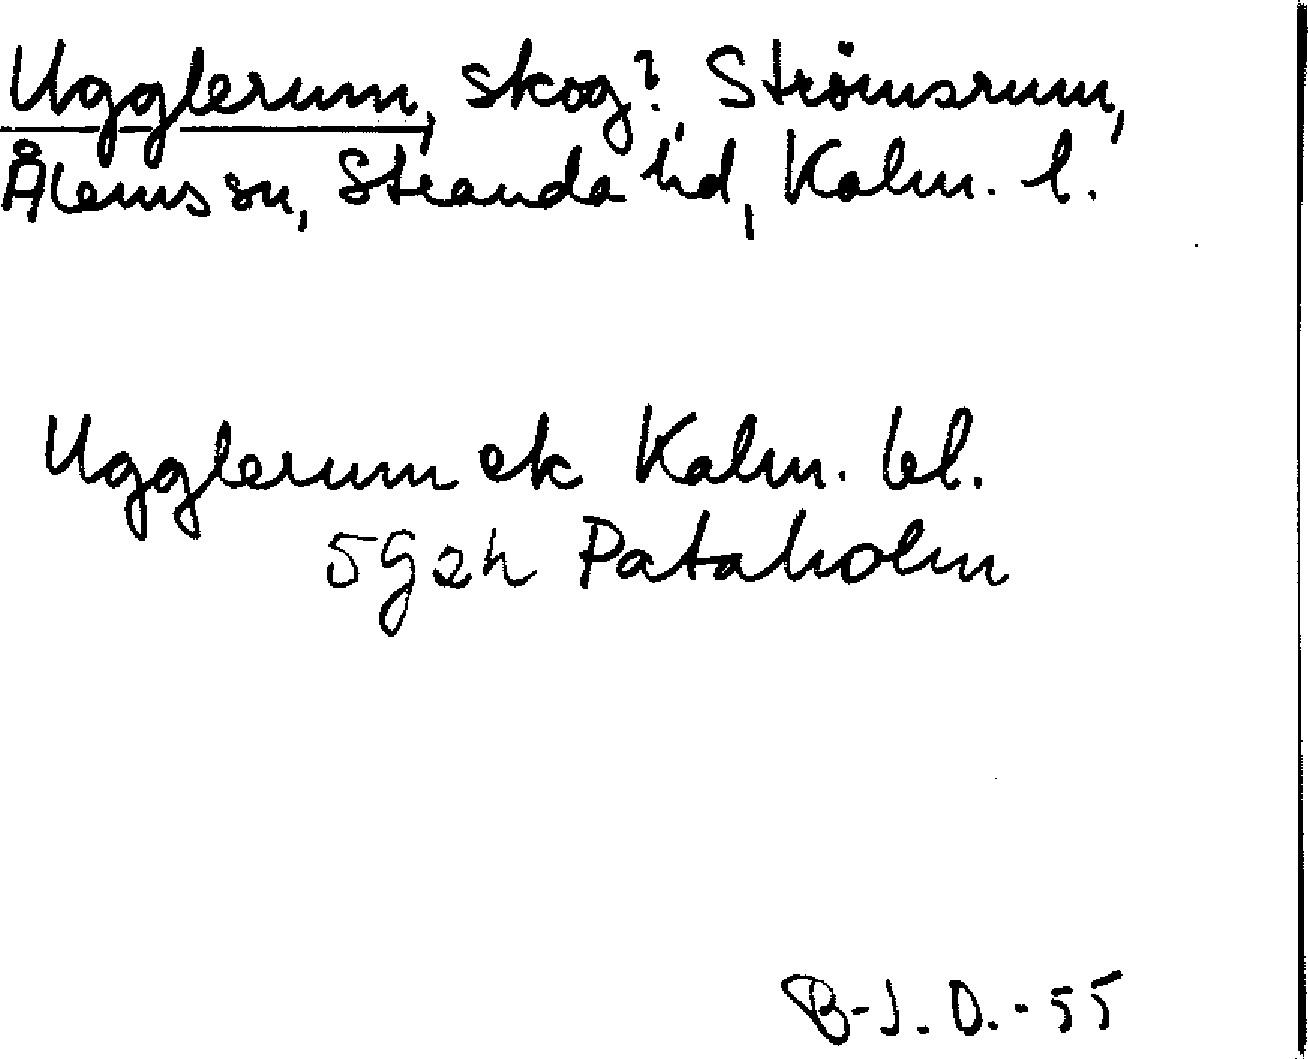 Ugglerum, skog?, Strömsrum,
Ålems sn, Stranda hd, Kalm. l.
Ugglerum ek Kalm. bl.
5G2h Pataholm
B-J.D.-55